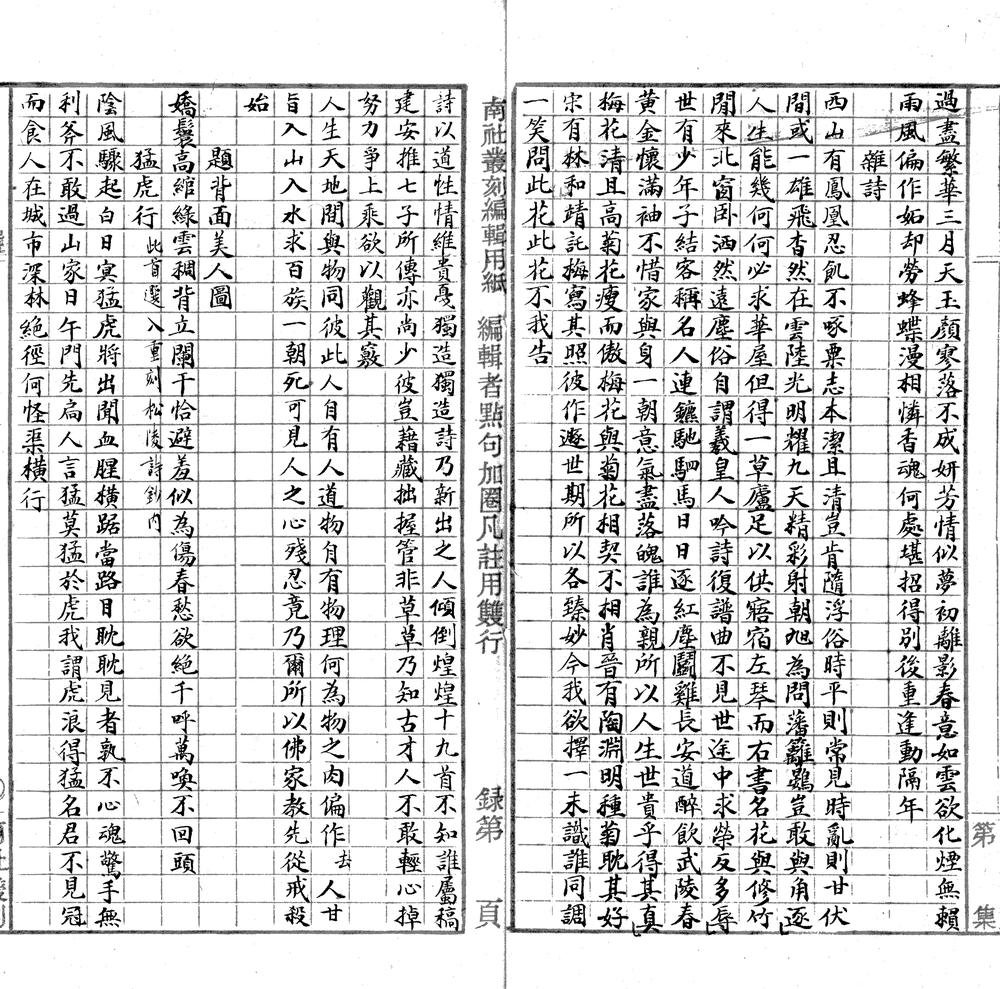 第 集
過盡繁華三月天玉顏寥落不成妍芳情似夢初離影春意如雲欲化煙無賴
雨風偏作妬却勞蜂蝶漫相憐香魂何處堪招得別後重逢動隔年
雜詩
西山有鳳凰忍飢不啄粟志本潔且清豈肯隨浮俗時平則常見時亂則甘伏
間或一雄飛杳然在雲陸光明耀九天精彩射朝旭為問藩籬鷃豈敢與角逐
人生能幾何何必求華屋但得一草廬足以供寤宿左琴而右書名花與修竹
閒來北窗卧洒然遠塵俗自謂羲皇人吟詩復譜曲不見世途中求榮反多辱
世有少年子結客稱名人連鑣馳駟馬日日逐紅塵鬭雞長安道醉飲武陵春
黃金懷滿袖不惜家與身一朝意氣盡落魄誰為親所以人生世貴乎得其真
梅花清且高菊花瘦而傲梅花與菊花相契不相肖晉有陶淵明種菊耽其好
宋有林和靖託梅寫其照彼作遯世期所以各臻妙今我欲擇一未識誰同調
一笑問此花此花不我告
南社叢刻編輯用紙 編輯者點句加圈凡註用雙行 錄第 頁
詩以道性情維貴戞獨造獨造詩乃新出之人傾倒煌煌十九首不知誰屬稿
建安推七子所傳亦尚少彼豈藉藏拙握管非草草乃知古才人不敢輕心掉
努力爭上乘欲以觀其竅
人生天地間與物同彼此人自有人道物自有物理何為物之肉偏作去人甘
旨入山入水求百族一朝死可見人之心殘忍竟乃爾所以佛家教先從戒殺
始
題背面美人圖
嬌鬟高綰綠雲稠背立闌干恰避羞似為傷春愁欲絕千呼萬喚不回頭
猛虎行 此首選入重刻松陵詩鈔內
陰風驟起白日冥猛虎將出聞血腥橫踞當路目耽耽見者孰不心魂驚手無
利斧不敢過山家日午門先扃人言猛莫猛於虎我謂虎浪得猛名君不見冠
而食人在城市深林絕徑何怪渠橫行